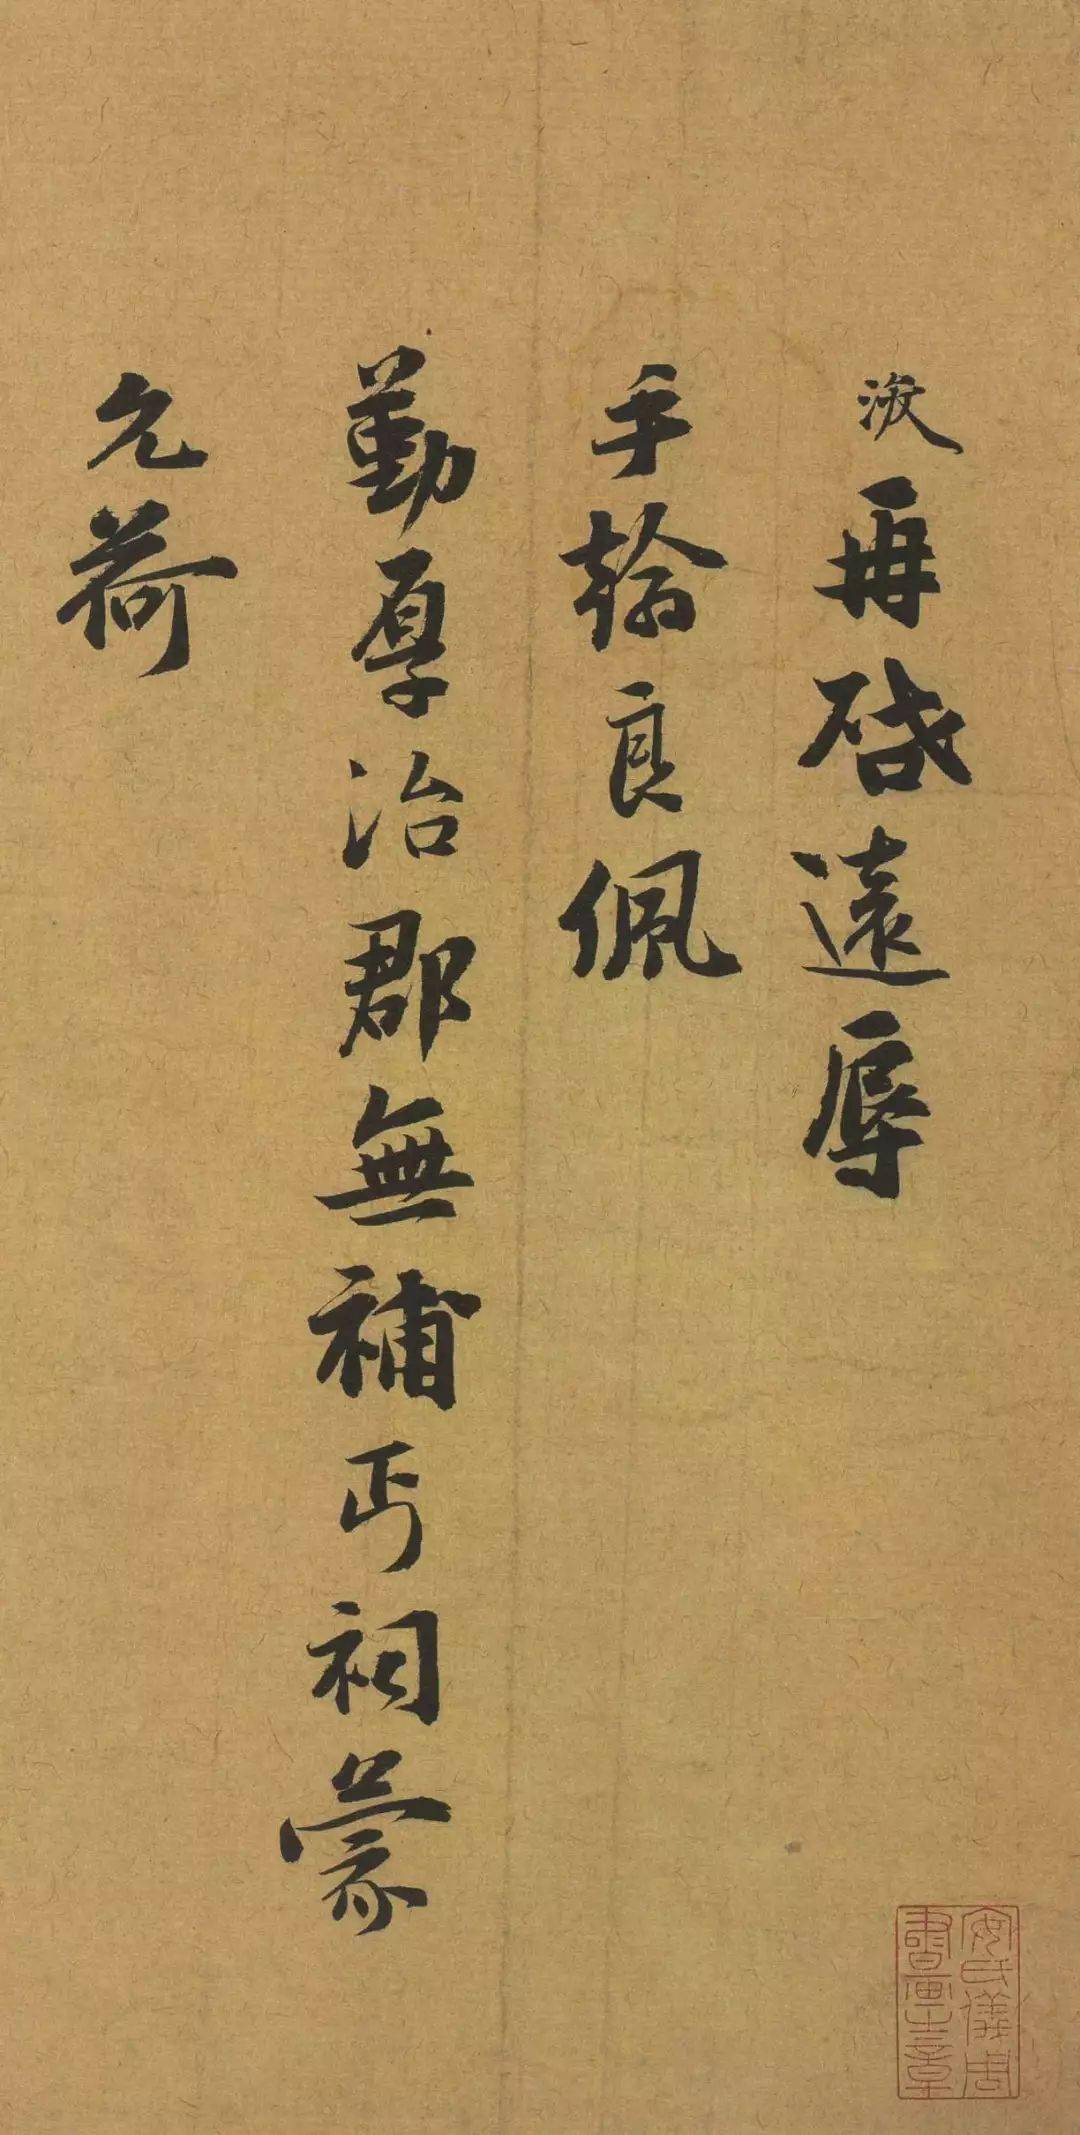 浚再啓遠辱
手翰良佩
勤厚治郡無補丐祠蒙
允荷
安氏儀周
書畫之章